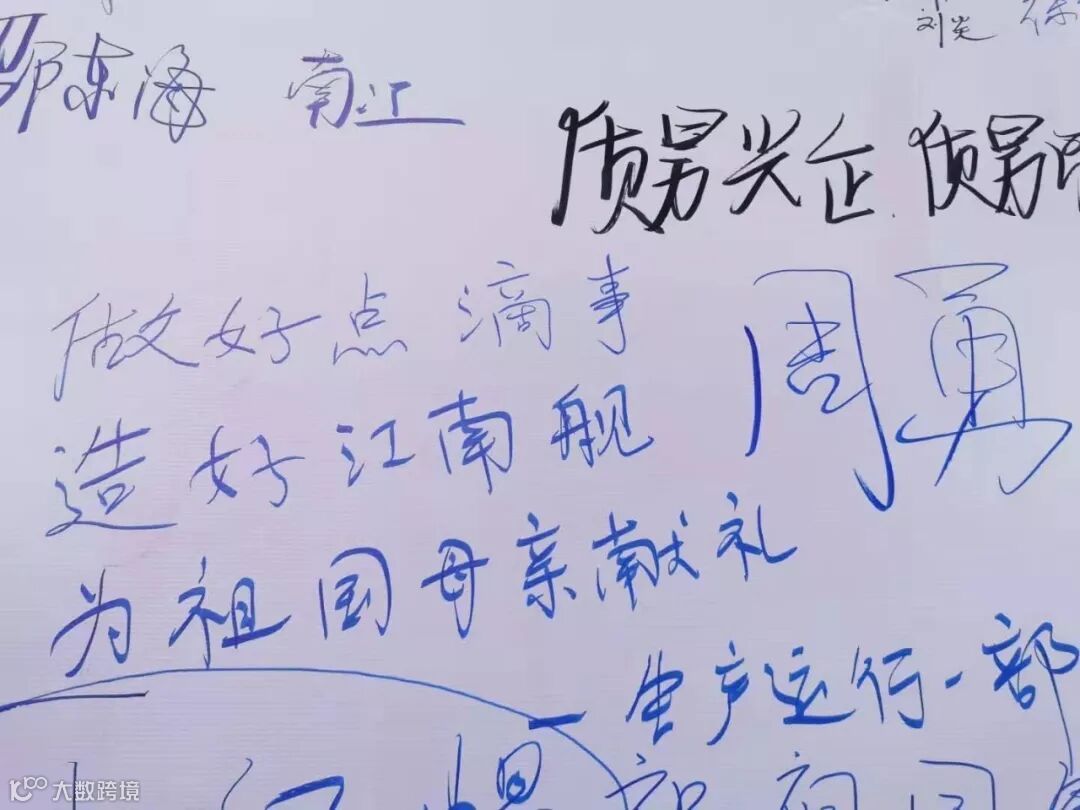 刘炎
邵东海 南江
质勇兴企 质勇
做好点滴事
周勇
造好江南舰
为祖国母亲献礼
—生产运行一部
大数跨境